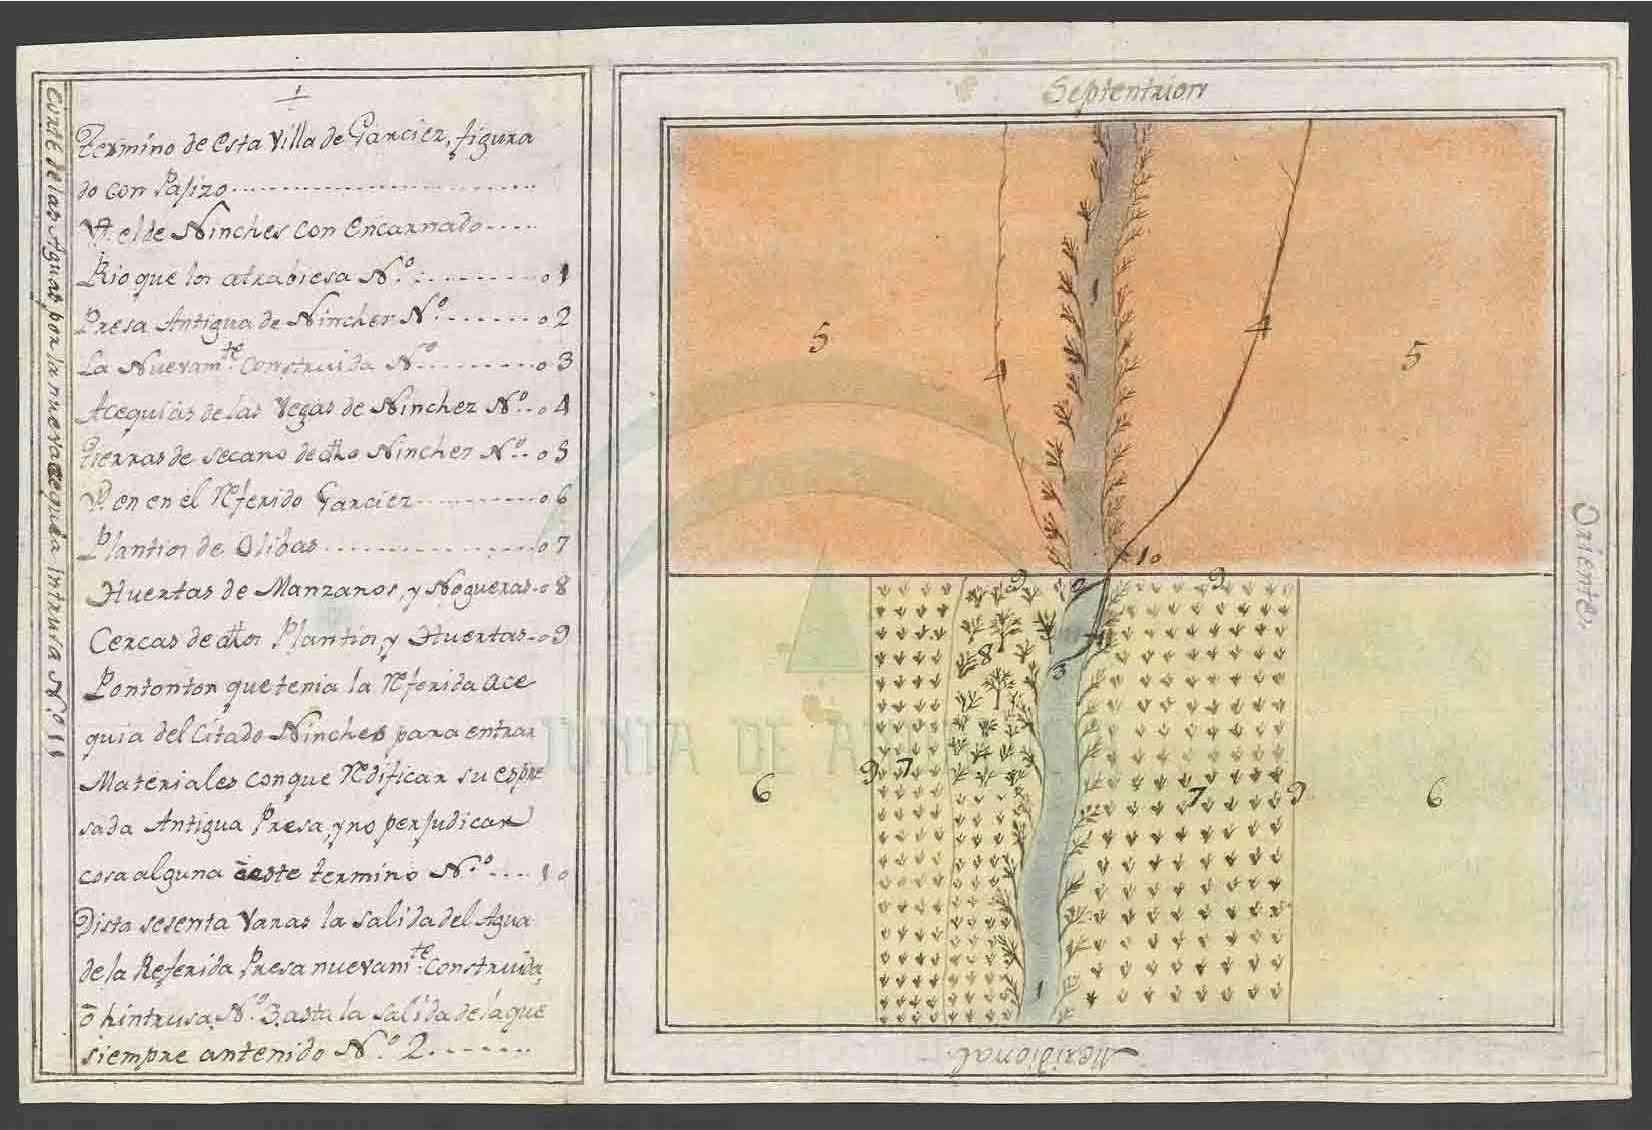 1
Termino de esta Villa de Garciez, figura
do con Pajizo
Yt. el de Ninches con Encarnado
Rio que los atrabiesa N.º 01
Presa Antigua de Ninches N.º 02
La Nuevam.te Construida N.º 03
Acequias de las Vegas de Ninchez N.º 04
Tierras de secano de dho Ninchez N.º 05
Yden en el Referido Garciez 06
Plantios de Olibas 07
Huertas de Manzanos, y Nogueras 08
Cercas de dhos Plantios, y Huertas 09
Pontonton que tenia la Referida ace
quia del Citado Ninches para entrar
Materiales conque Redificar su espre
sada Antigua Presa, y no perjudicar
cosa alguna éeste termino N.º 10
Dista sesenta Varas la salida del Agua
de la Referida Presa nuevam.te Construida,
ō hintrusa, N.º 3, asta la salida de la que
siempre antenido N.º 2
de las Aguas por la nueva intrusa N.º 11
Septentrion
5
4
1
4
5
10
9
2
9
8
3
6
9
7
7
9
6
1
Oriente.
Meridional